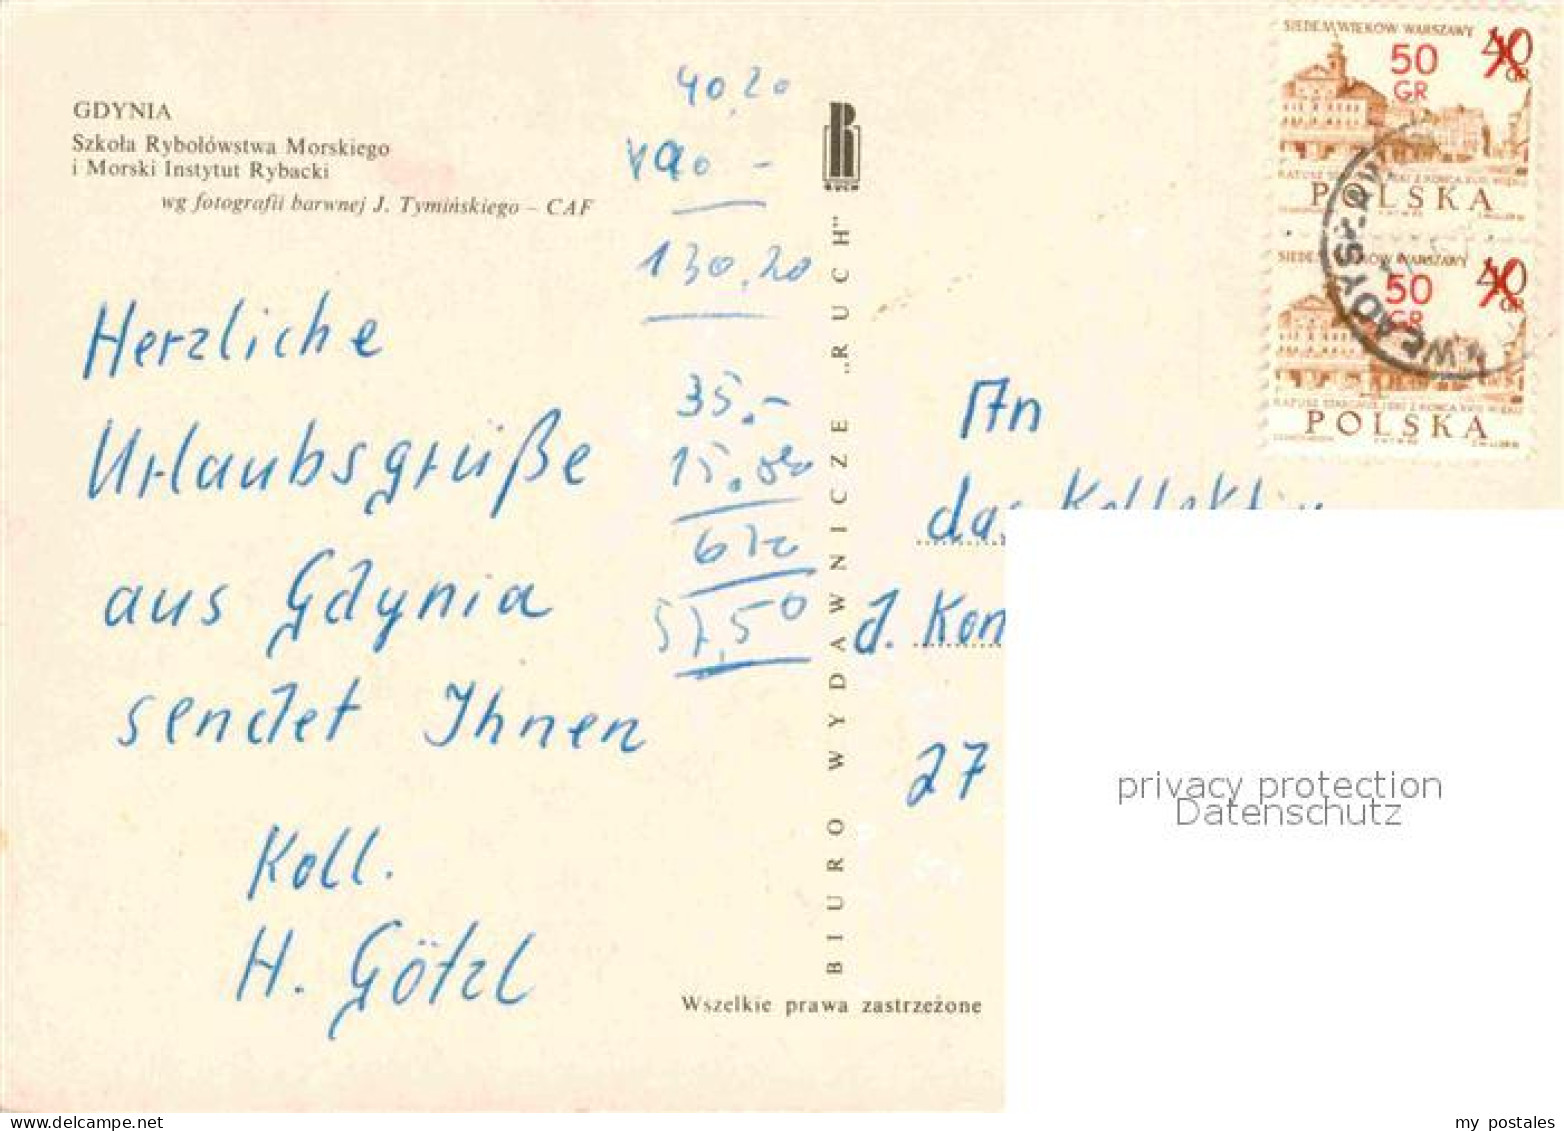 GDYNIA
Szkoła Rybołówstwa Morskiego
i Morski Instytut Rybacki
wg fotografii barwnej J. Tymińskiego – CAF
Herzliche
Urlaubsgrüße
aus Gdynia
sendet Ihnen
Koll.
H. Götzl
40,20
90 –
130,20
35.–
15.
57,50
RUCH
BIURO WYDAWNICZE „RUCH"
Wszelkie prawa zastrzeżone
SIEDEM WIEKÓW WARSZAWY
50 GR
40 GR
POLSKA
SIEDEM WIEKÓW WARSZAWY
50 GR
40 GR
POLSKA
An
das Kollektiv
d. Kon
27
privacy protection
Datenschutz
my postales